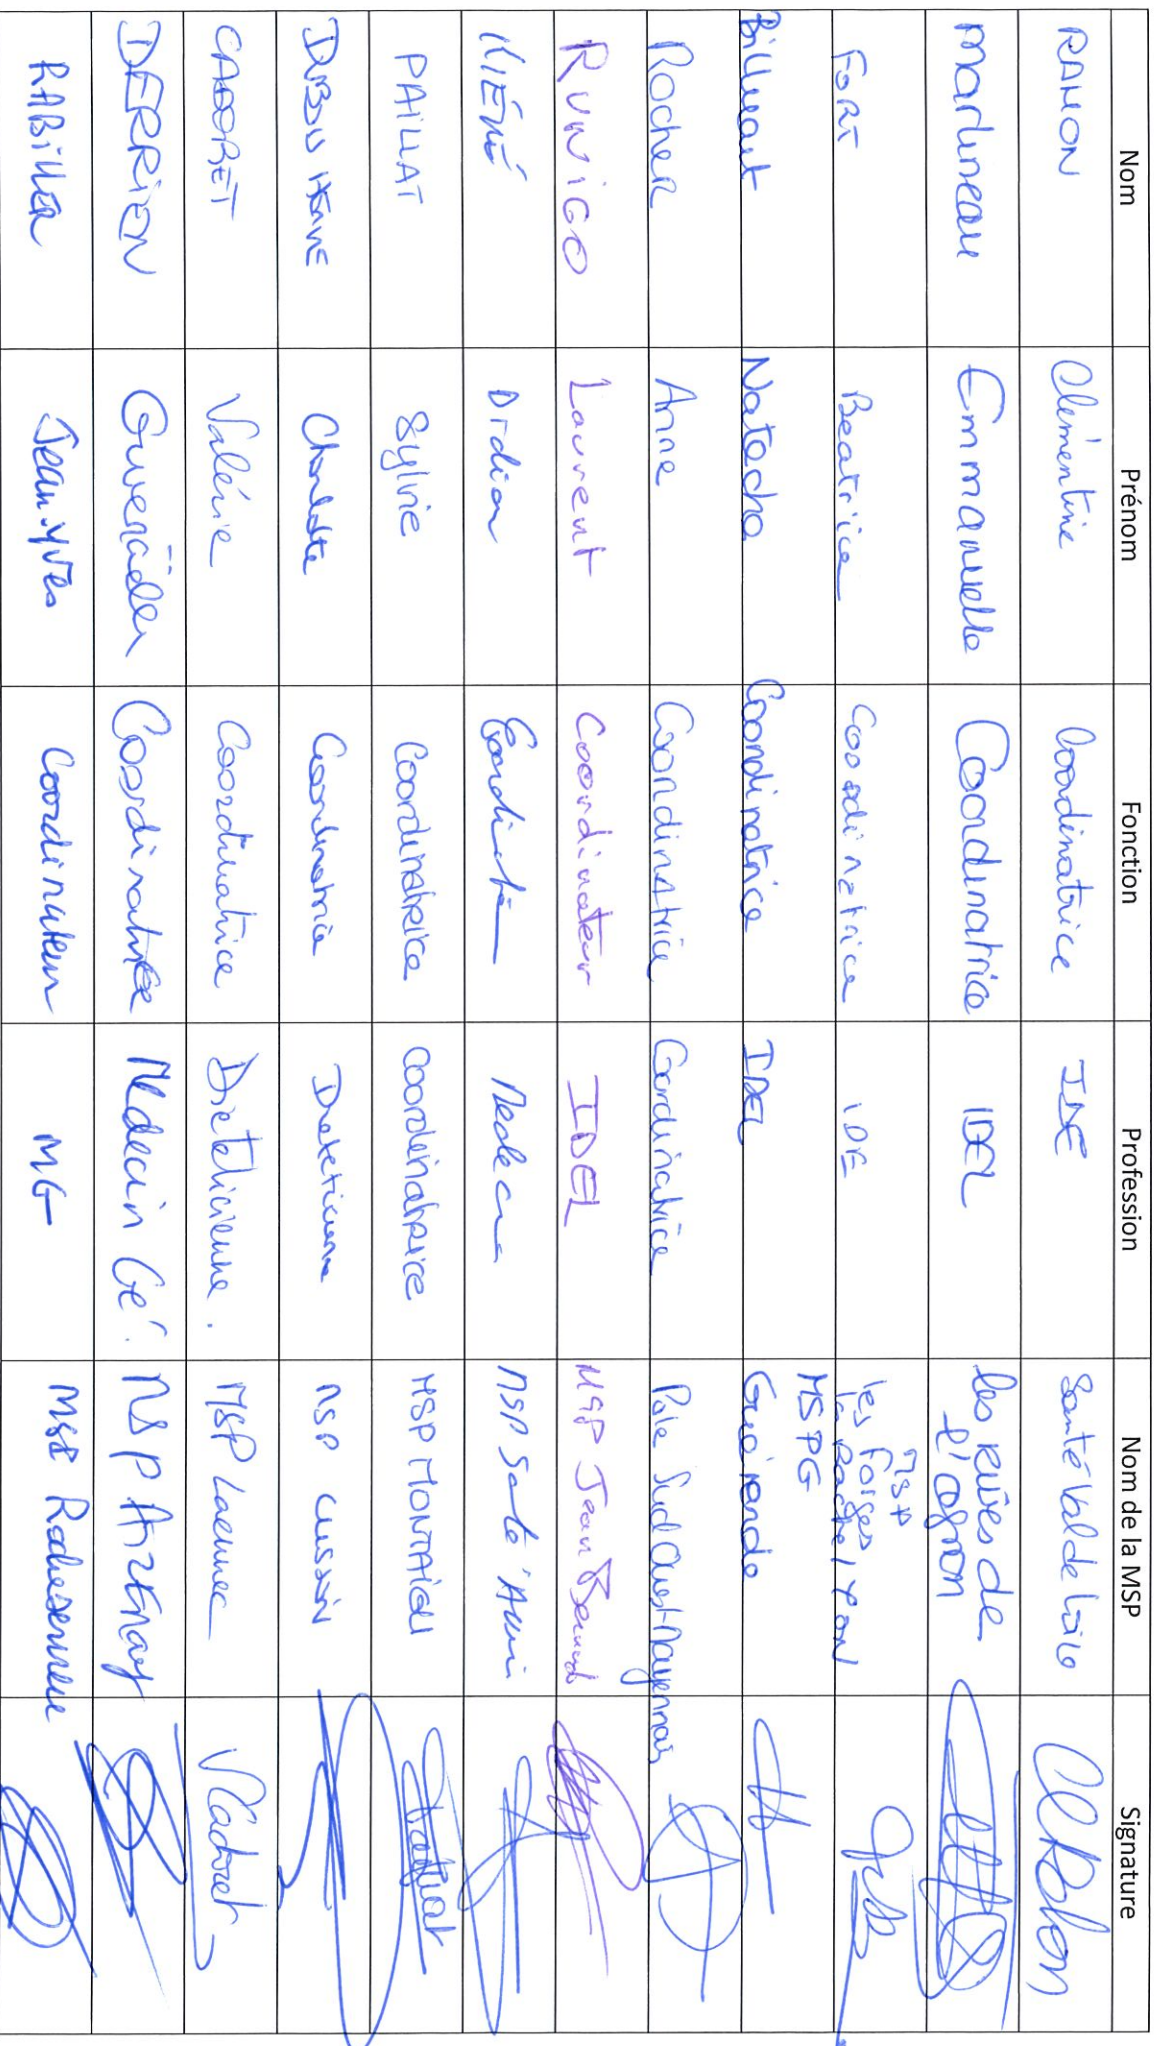 Nom Prénom Fonction Profession Nom de la MSP Signature
RAMON Clémentine Coordinatrice IDE Santé Val de Loire
Martineau Emmanuelle Coordinatrice IDEL les Rives de
l'ognon
FORT Beatrice Coordinatrice IDE MSP
les Forges
MSPG
Billeaut Natacha Coordinatrice IDEL Guérande
Rocher Anne Coordinatrice Coordinatrice Pole Sud Ouest Mayennais
RUNIGO Laurent Coordinateur IDEL MSP Jean Bernard
Didier MSP
PAILLAT Sylvie Coordinatrice Coordinatrice MSP MONTAIGU
Charlotte Coordinatrice MSP
CADORET Valérie Coordinatrice Diététicienne. MSP Laennec V Cadoret
DERRIEN Gwenaëlle Coordinatrice Médecin Gé. MSP
RABILLER Jean-Yves Coordinateur MG MSP